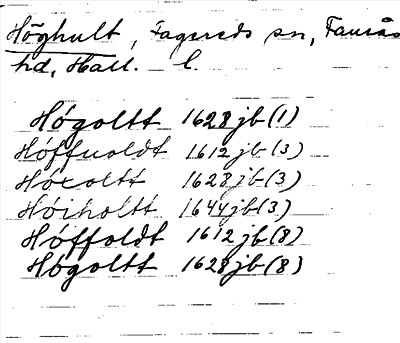 Höghult, Fagereds sn, Faurås
hd, Hall. l.
Høgoltt 1628 jb (1)
Høffuoldt 1612 jb (3)
Høxoltt 1628 jb (3)
Høiholtt 1644 jb (3)
Høffoldt 1612 jb (8)
Høgoltt 1628 jb (8)